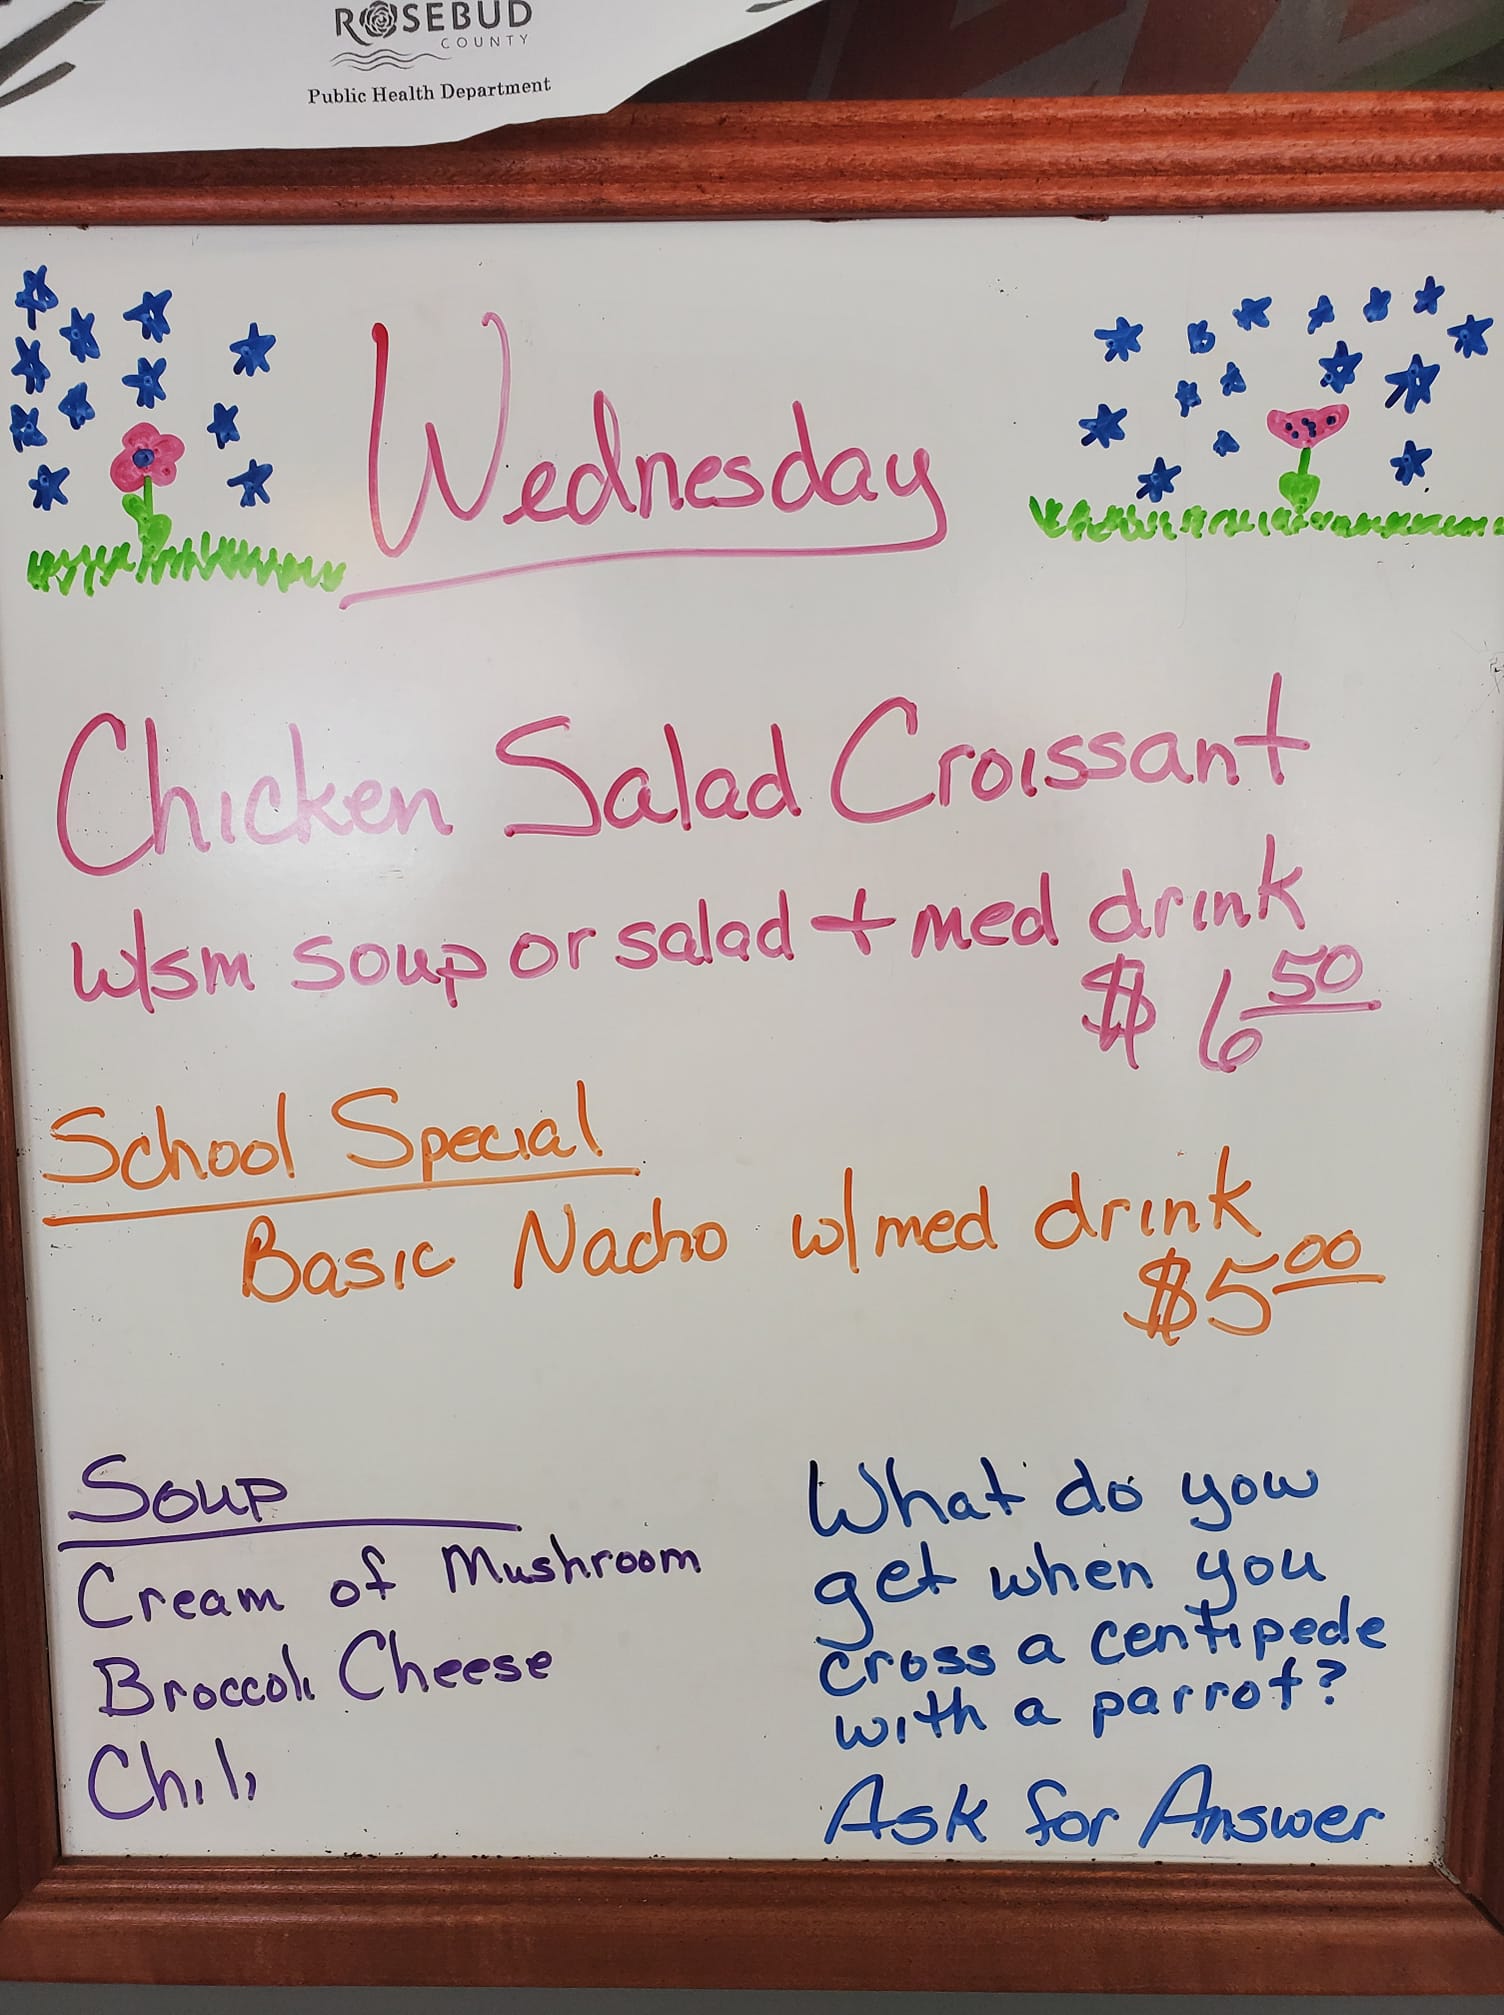 ROSEBUD
COUNTY
Public Health Department
Wednesday
Chicken Salad Croissant
w/sm soup or salad + med drink
$6.50
School Special
Basic Nacho w/med drink
$5.00
Soup
Cream of Mushroom
Broccoli Cheese
Chili
What do you
get when you
cross a centipede
with a parrot?
Ask for Answer